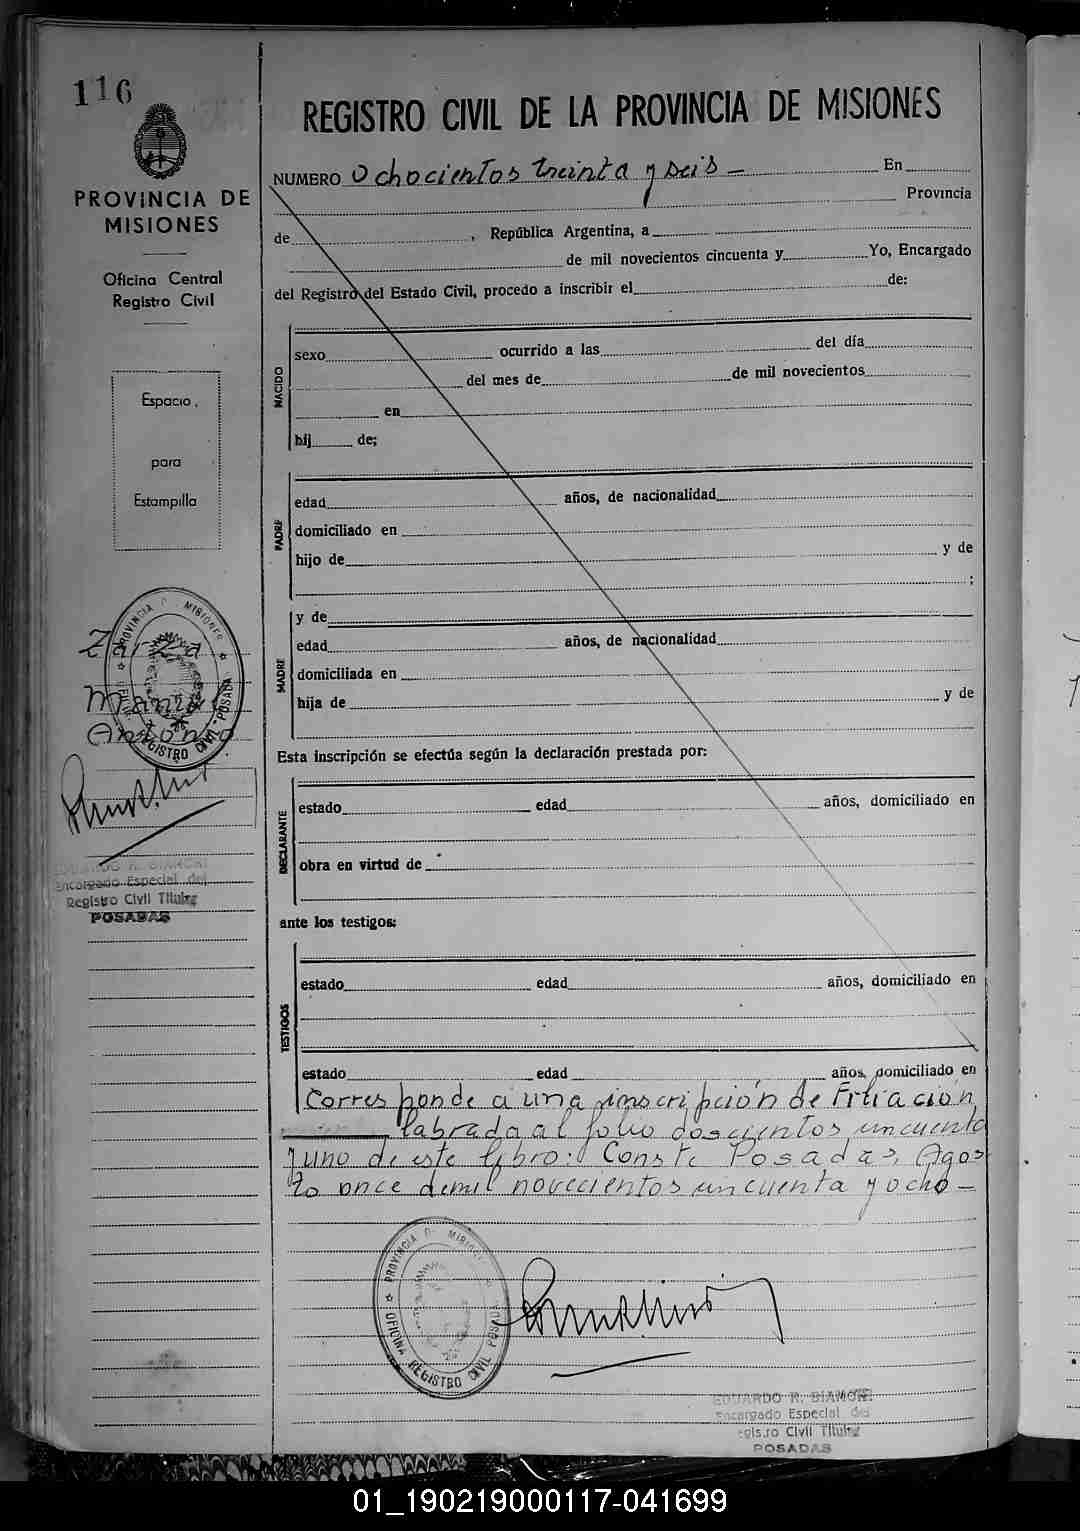 116
PROVINCIA DE
MISIONES
Oficina Central
Registro Civil
Espacio
para
Estampilla
PROVINCIA D MISIONES
OFICINA REGISTRO CIVIL - POSADAS
Zarza
Manuel
Antonio
EDUARDO R. BIANCHI
Encargado Especial del
Registro Civil Titular
POSADAS
REGISTRO CIVIL DE LA PROVINCIA DE MISIONES
NUMERO Ochocientos treinta y seis — En
Provincia
de , República Argentina, a
de mil novecientos cincuenta y Yo, Encargado
del Registro del Estado Civil, procedo a inscribir el de:
NACIDO
sexo ocurrido a las del día
del mes de de mil novecientos
en
hij de;
PADRE
edad años, de nacionalidad
domiciliado en
hijo de y de
;
MADRE
y de
edad años, de nacionalidad
domiciliada en
hija de y de
Esta inscripción se efectúa según la declaración prestada por:
DECLARANTE
estado edad años, domiciliado en
obra en virtud de
ante los testigos:
TESTIGOS
estado edad años, domiciliado en
estado edad años, domiciliado en
Corresponde a una inscripción de Filiación
labrada al folio doscientos cincuenta
y uno de este libro: Conste Posadas, Agos-
to once de mil novecientos cincuenta y ocho —
PROVINCIA D MISIONES
OFICINA REGISTRO CIVIL POSADAS
EDUARDO R. BIANCHI
Encargado Especial del
Registro Civil Titular
POSADAS
01_190219000117-041699